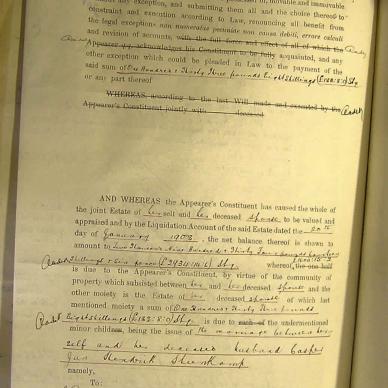 without any exception, and submitting them all and the choice thereof to
constraint and execution according to Law, renouncing all benefit from
the legal exceptions non numeratae pecuniae non causa debiti, errore calculi
and revision of accounts, with the force and effect of all of which the
Appearer acknowledges his Constituent to be fully acquainted, and any
other exception which could be pleaded in Law to the payment of the
said sum of One Hundred & Thirty Three pounds Eight Shillings
or any part thereof
WHEREAS, according to the last Will made and executed by the
Appearer's Constituent jointly with deceased
AND WHEREAS the Appearer's Constituent has caused the whole of
the joint Estate of her self and her deceased spouse to be valued and
appraised and by the Liquidation Account of the said Estate dated the 20th
day of January 1908, the net balance thereof is shown to
amount to Two Thousand Nine Hundred & Thirty Four pounds
Shillings & Six pence (£2934.14.6) Stg. whereof the one half
is due to the Appearer's Constituent, by virtue of the community of
property which subsisted between her and her deceased spouse and the
other moiety is the Estate of her deceased spouse of which last
mentioned moiety a sum of One Hundred & Thirty Three pounds
Eight Shillings Stg. is due to each of the undermentioned
minor children, being the issue of the marriage between her
self and her deceased husband Casper
Jan Hendrik Steenkamp
namely,
To: